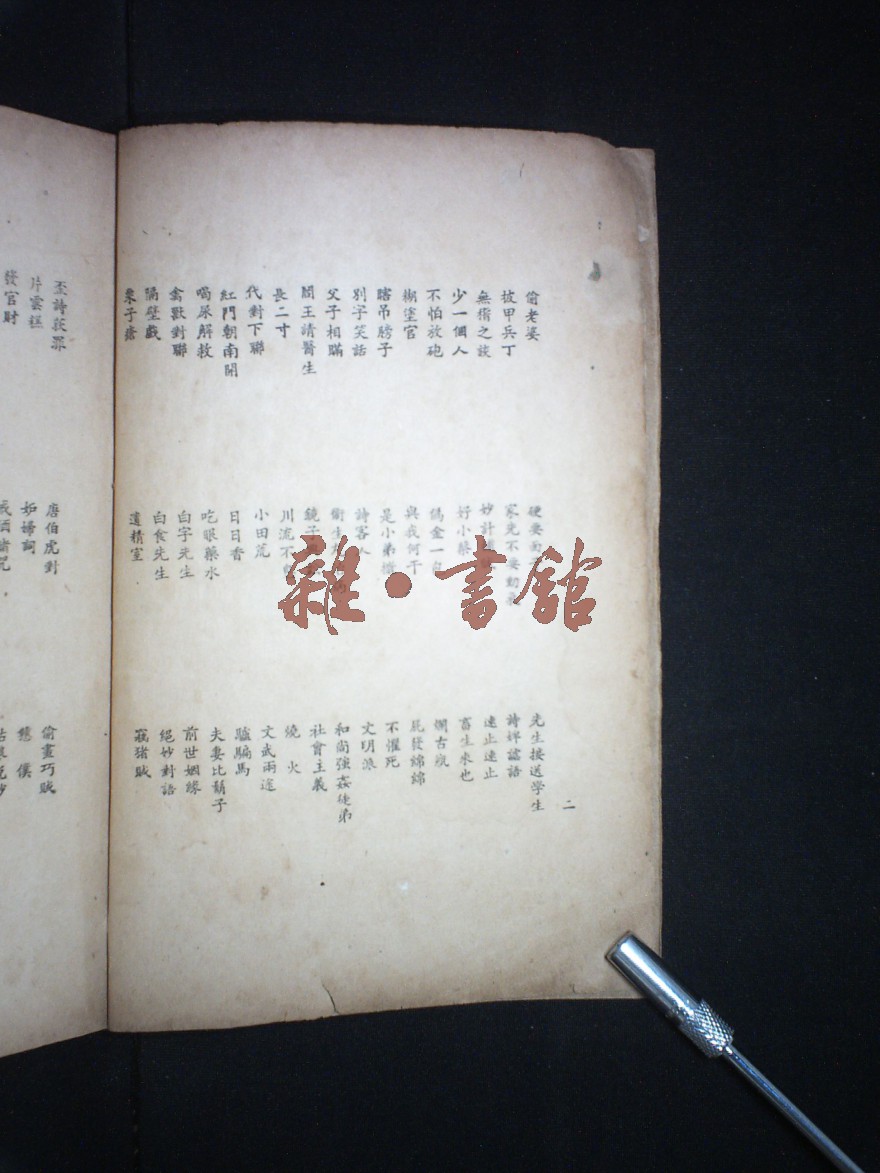 偷老婆
披甲兵丁
無之談
少一個人
不怕放砲
糊塗官
瞎吊膀子
別字笑話
父子相瞞
閻王請醫生
長二寸
代對下聯
紅門朝南開
喝尿解救
禽獸對聯
隔壁戲
栗子
硬要
家先不要動
妙計
好小
金一
與我何干
是小弟
詩客人
衛生
鏡子
川流不
小田荒
日日香
吃眼藥水
白字先生
白食先生
遺精室
先生接送學生
詩婢謔語
速止速止
畜生來也
爛古
屍發綿綿
不懼死
文明派
和尚強姦徒弟
社會主義
燒火
文武兩途
驢騙馬
夫妻比鬍子
前世姻緣
絕妙對語
窩猪賊
二
詩救罪
片雲糕
發官財
唐伯虎對
妬婦詞
偷畫巧賊
僕
雜·書館